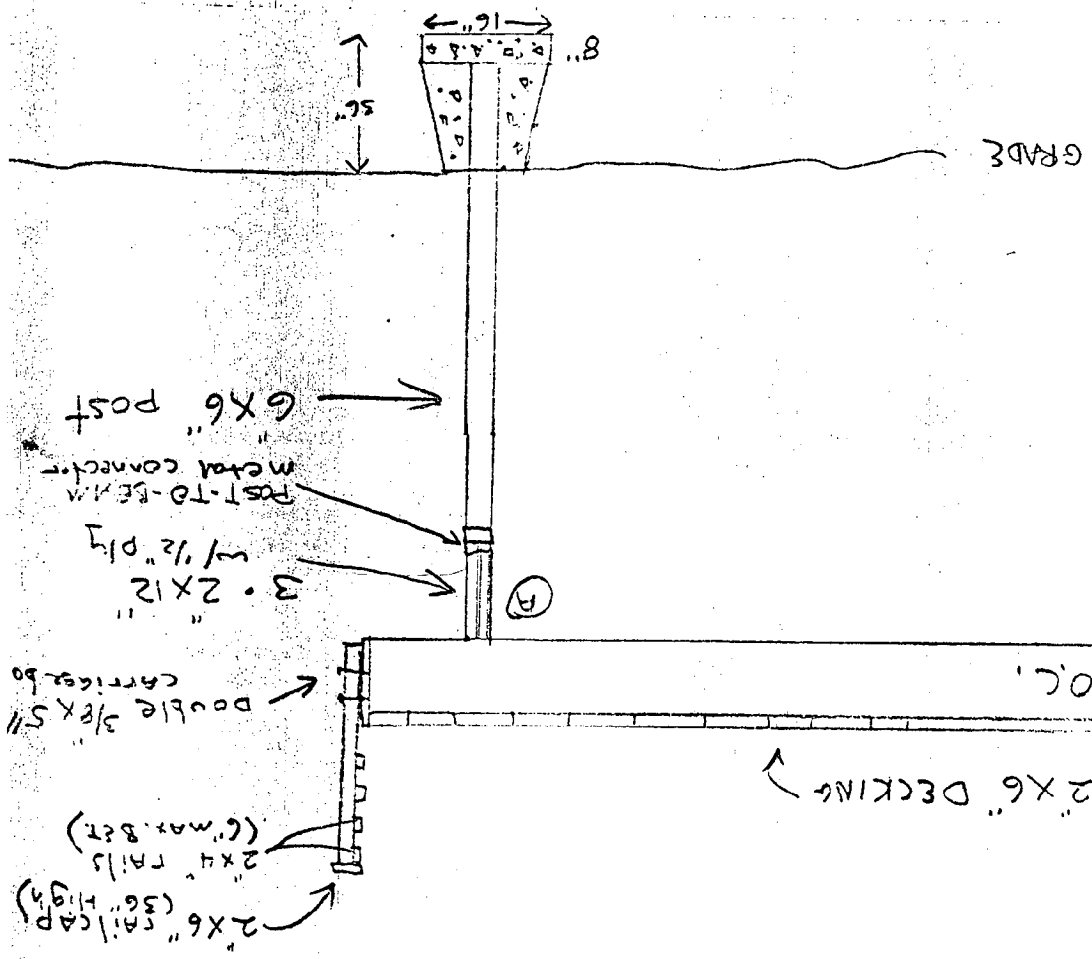 2"X6" railcap
(36" High)
2"x4" rails
(6" max. BET.)
2"X6" DECKING
O.C.
DOUBLE 3/8"X5"
CARRIAGE bo
A
3 · 2"X12"
w/ 1/2" ply
POST-TO-BEAM
metal connector
6"X6" POST
GRADE
36"
8"
16"